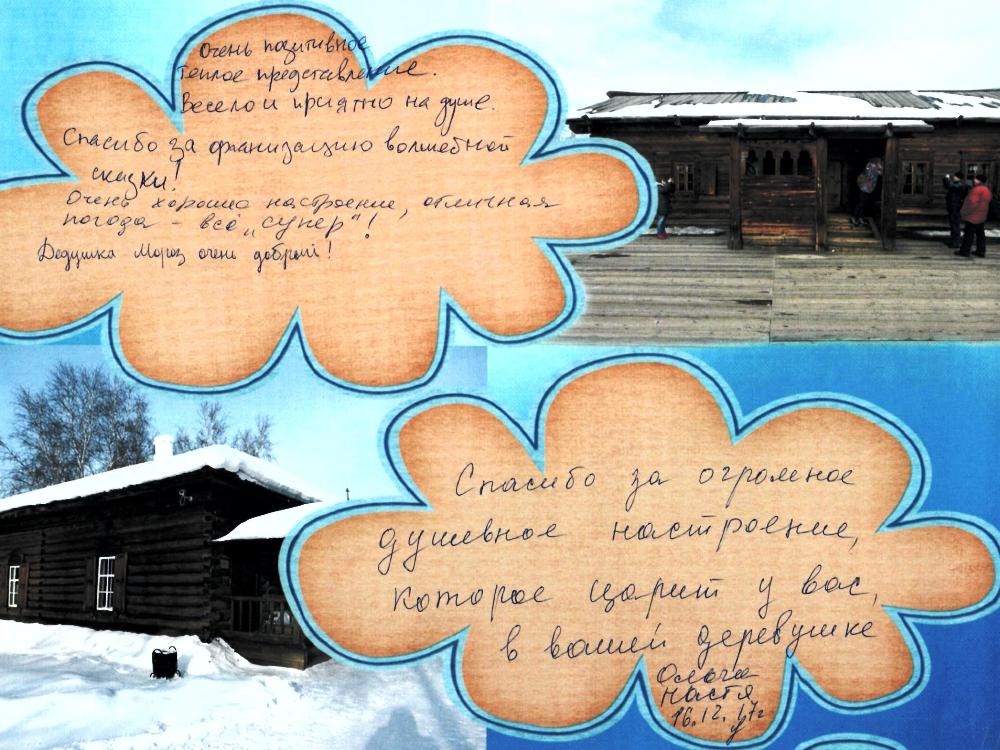 Очень позитивное
Теплое представление.
Весело и приятно на душе.
Спасибо за организацию волшебной
сказки!
Очень хорошее настроение, отличная
погода - всё „супер"!
Дедушка Мороз очень добрый!
Спасибо за огромное
душевное настроение,
которое царит у вас,
в вашей деревушке
Ольга
Настя
16.12.17г